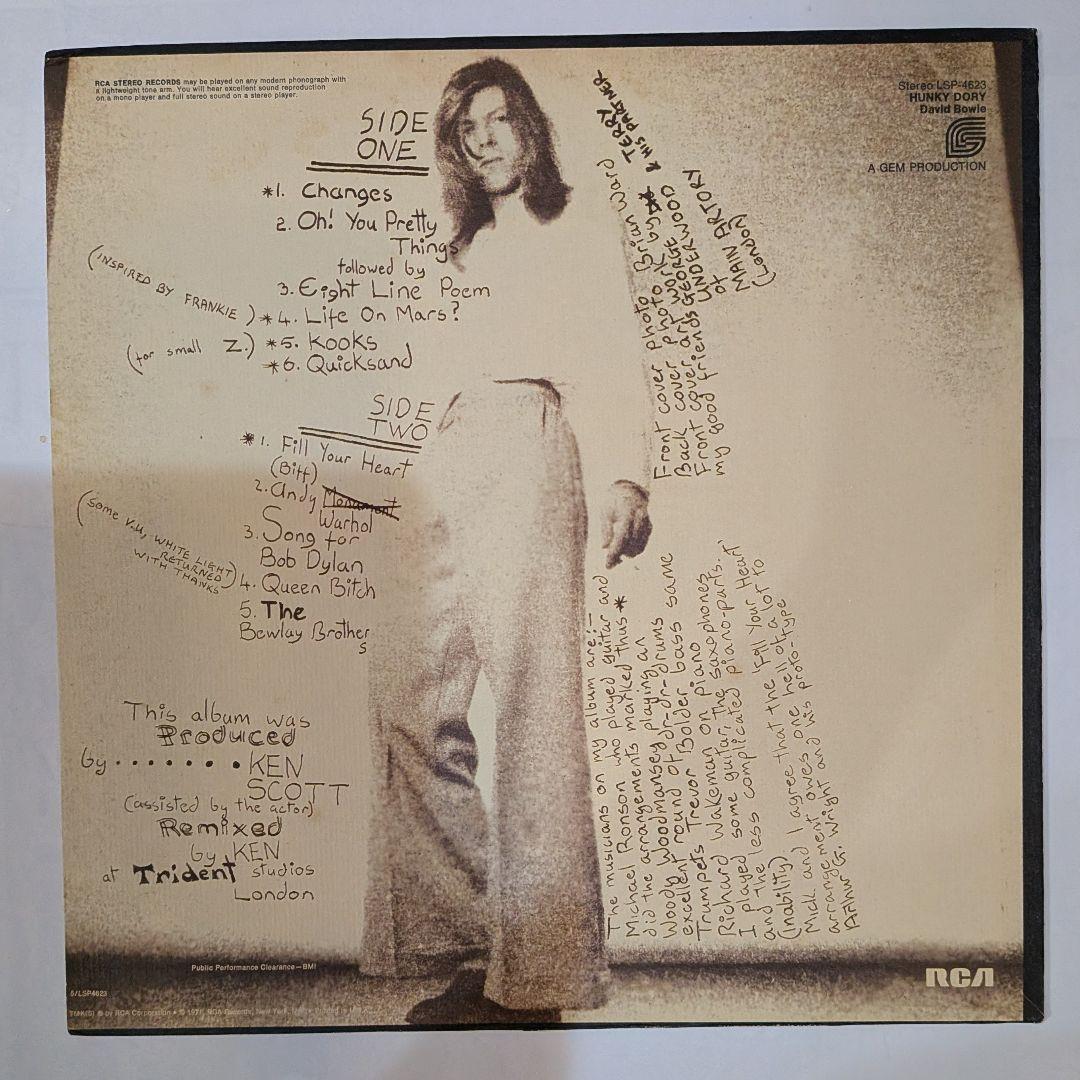 RCA STEREO RECORDS may be played on any modern phonograph with
a lightweight tone arm. You will hear excellent sound reproduction
on a mono player and full stereo sound on a stereo player.
Stereo LSP-4623
HUNKY DORY
David Bowie
A GEM PRODUCTION
SIDE
ONE
*1. Changes
2. Oh! You Pretty
Things
followed by
3. Eight Line Poem
(INSPIRED BY FRANKIE) *4. Life On Mars?
(for small Z.) *5. Kooks
*6. Quicksand
SIDE
TWO
*1. Fill Your Heart
(Biff)
2. Andy Monument
Warhol
3. Song for
Bob Dylan
(Some V.U, WHITE LIGHT
RETURNED
WITH THANKS)
4. Queen Bitch
5. The
Bewlay Brother
s
This album was
Produced
by.......KEN
SCOTT
(assisted by the actor)
Remixed
by KEN
at Trident studios
London
Front cover photo Brian Ward
Back cover photo by & HIS PARTNER
Front cover art WORK TERRY
my good friends GEORGE
UNDERWOOD
of
MAIN ARTORY
(London)
The musicians on my album are:-
Michael Ronson who played guitar and
did the arrangements marked thus *
Woody Woodmansey playing an
excellent round of dr-dr-drums
Trumpets Trevor Bolder bass same
Richard Wakeman on piano
I played some guitar, the saxophones
and the less complicated piano-parts.
(inability) I agree that the 'Fill Your Heart'
Mick and owes one hell of a lot to
arrangement and his proto-type
Arthur G. Wright
Public Performance Clearance—BMI
5/LSP4623
TMK(S) ® by RCA Corporation • © 1971, RCA Records, New York,
RCA